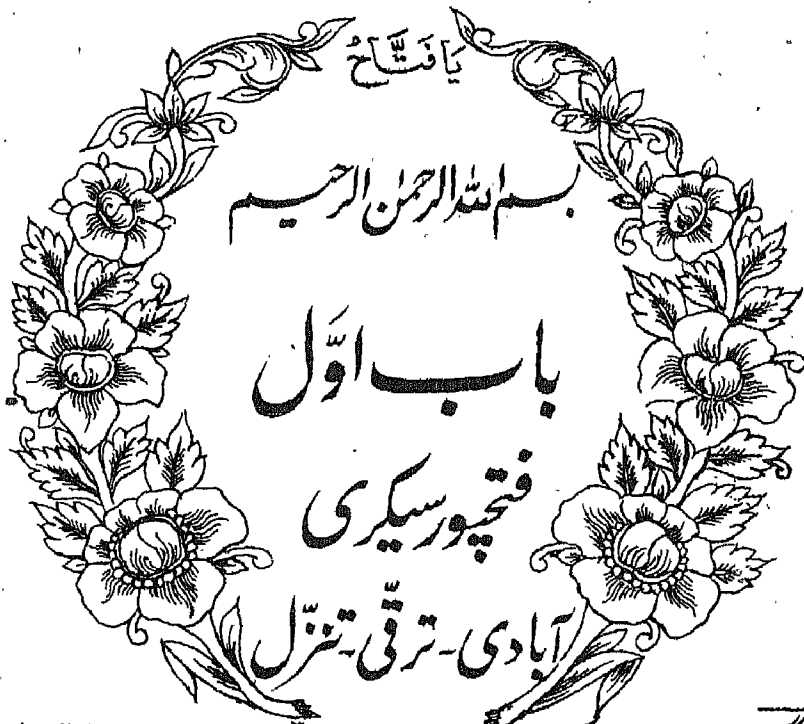 یَا فَتَّاحُ
بسم اللہ الرحمٰن الرحیم
باب اوَّل
فتحپور سیکری
آبادی ۔ ترقّی ۔ تنزّل